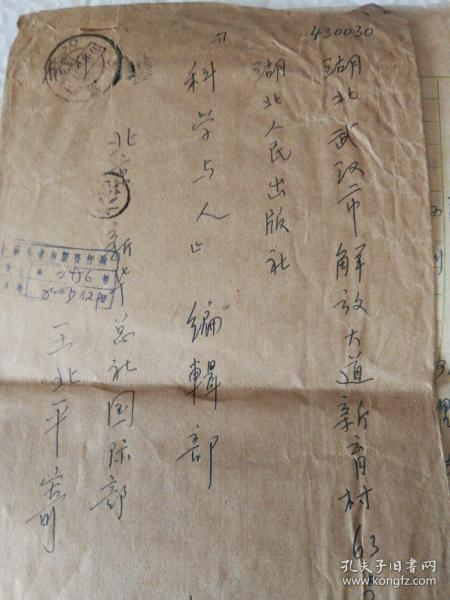 430030
湖北武汉市解放大道新育村63号
湖北人民出版社
《科学与人》编辑部
北京新华总社国际部
王北平寄
孔夫子旧书网
www.kongfz.com